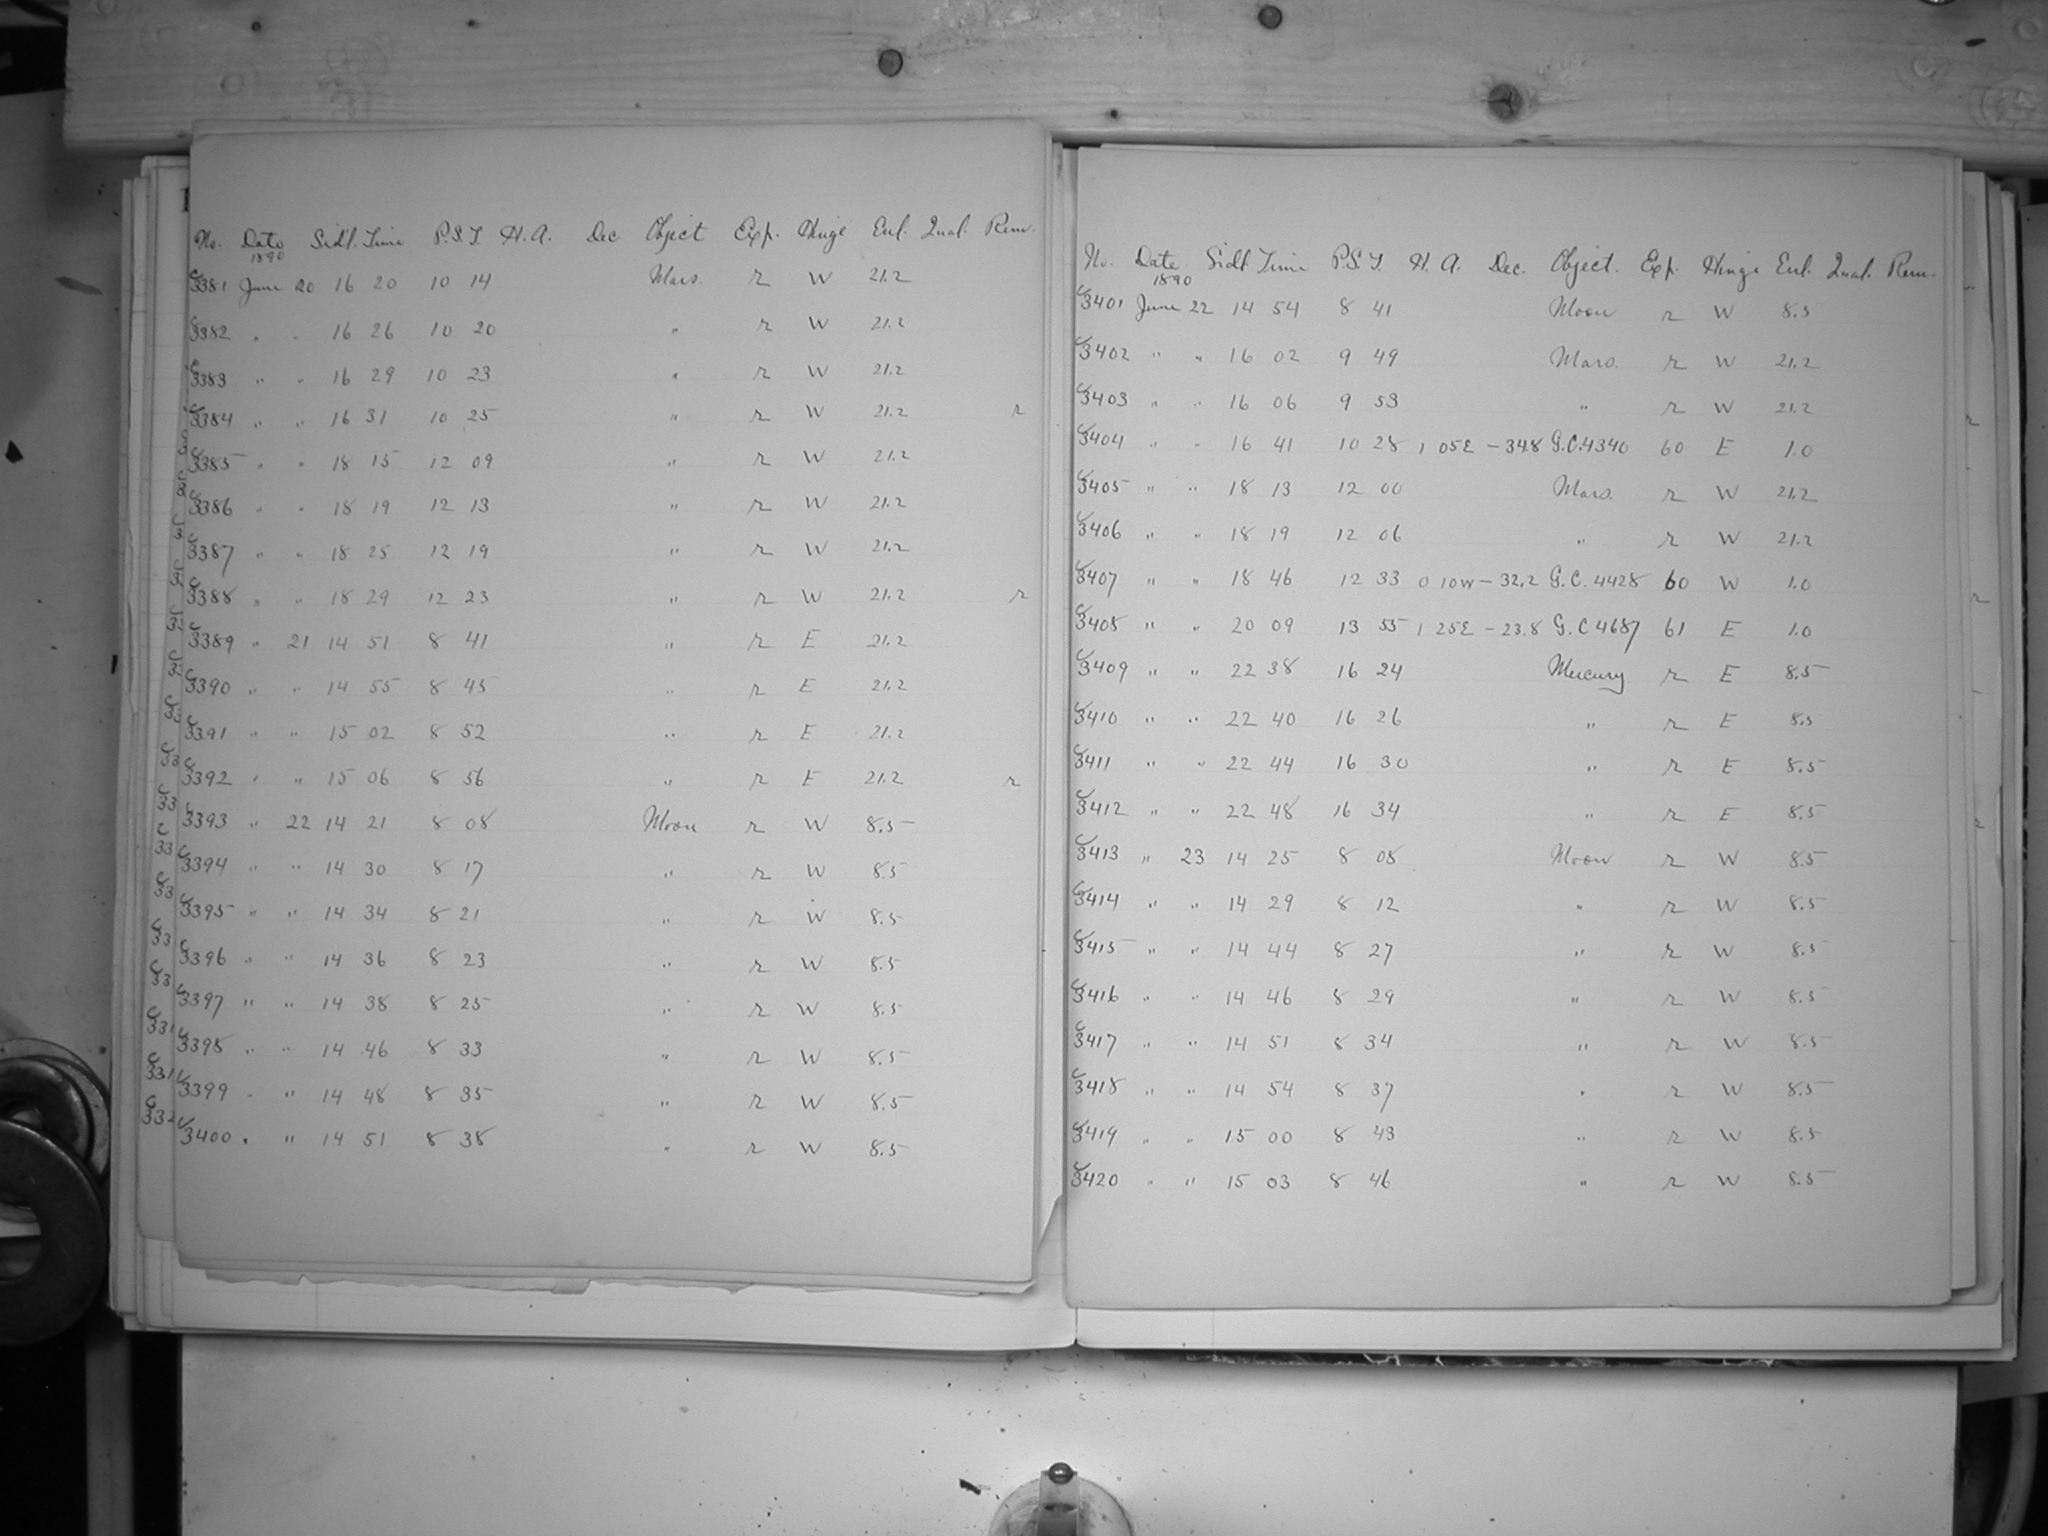 No. Date Sidl. Time P.S.T. H.A. Dec Object Exp. Hinge Enl. Qual. Rem.
1890
C3381 June 20 16 20 10 14 Mars. r W 21.2
C3382 " " 16 26 10 20 " r W 21.2
C3383 " " 16 29 10 23 " r W 21.2
C3384 " " 16 31 10 25 " r W 21.2 r
C3385 " " 18 15 12 09 " r W 21.2
C3386 " " 18 19 12 13 " r W 21.2
C3387 " " 18 25 12 19 " r W 21.2
C3388 " " 18 29 12 23 " r W 21.2 r
C3389 " 21 14 51 8 41 " r E 21.2
C3390 " " 14 55 8 45 " r E 21.2
C3391 " " 15 02 8 52 " r E 21.2
C3392 " " 15 06 8 56 " r E 21.2 r
C3393 " 22 14 21 8 08 Moon r W 8.5
C3394 " " 14 30 8 17 " r W 8.5
C3395 " " 14 34 8 21 " r W 8.5
C3396 " " 14 36 8 23 " r W 8.5
C3397 " " 14 38 8 25 " r W 8.5
C3398 " " 14 46 8 33 " r W 8.5
C3399 " " 14 48 8 35 " r W 8.5
C3400 " " 14 51 8 38 " r W 8.5
No. Date Sidl. Time P.S.T. H.A. Dec. Object. Exp. Hinge Enl. Qual. Rem.
1890
C3401 June 22 14 54 8 41 Moon r W 8.5
C3402 " " 16 02 9 49 Mars. r W 21.2
C3403 " " 16 06 9 53 " r W 21.2
C3404 " " 16 41 10 28 1 05E -34.8 G.C.4340 60 E 1.0
C3405 " " 18 13 12 00 Mars. r W 21.2
C3406 " " 18 19 12 06 " r W 21.2
C3407 " " 18 46 12 33 0 10W -32.2 G.C. 4428 60 W 1.0
C3408 " " 20 09 13 55 1 25E -23.8 G.C 4687 61 E 1.0
C3409 " " 22 38 16 24 Mercury r E 8.5
C3410 " " 22 40 16 26 " r E 8.5
C3411 " " 22 44 16 30 " r E 8.5
C3412 " " 22 48 16 34 " r E 8.5
C3413 " 23 14 25 8 08 Moon r W 8.5
C3414 " " 14 29 8 12 " r W 8.5
C3415 " " 14 44 8 27 " r W 8.5
C3416 " " 14 46 8 29 " r W 8.5
C3417 " " 14 51 8 34 " r W 8.5
C3418 " " 14 54 8 37 " r W 8.5
C3419 " " 15 00 8 43 " r W 8.5
C3420 " " 15 03 8 46 " r W 8.5